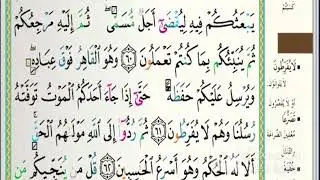 يَبْعَثُكُمْ فِيهِ لِيُقْضَىٰٓ أَجَلٌ مُّسَمًّى ۖ ثُمَّ إِلَيْهِ مَرْجِعُكُمْ
ثُمَّ يُنَبِّئُكُم بِمَا كُنتُمْ تَعْمَلُونَ ٦٠ وَهُوَ ٱلْقَاهِرُ فَوْقَ عِبَادِهِۦ ۖ
وَيُرْسِلُ عَلَيْكُمْ حَفَظَةً حَتَّىٰٓ إِذَا جَآءَ أَحَدَكُمُ ٱلْمَوْتُ تَوَفَّتْهُ
رُسُلُنَا وَهُمْ لَا يُفَرِّطُونَ ٦١ ثُمَّ رُدُّوٓا۟ إِلَى ٱللَّهِ مَوْلَىٰهُمُ ٱلْحَقِّ ۚ
أَلَا لَهُ ٱلْحُكْمُ وَهُوَ أَسْرَعُ ٱلْحَٰسِبِينَ ٦٢ قُلْ مَن يُنَجِّيكُم مِّن
لَا يُفَرِّطُونَ